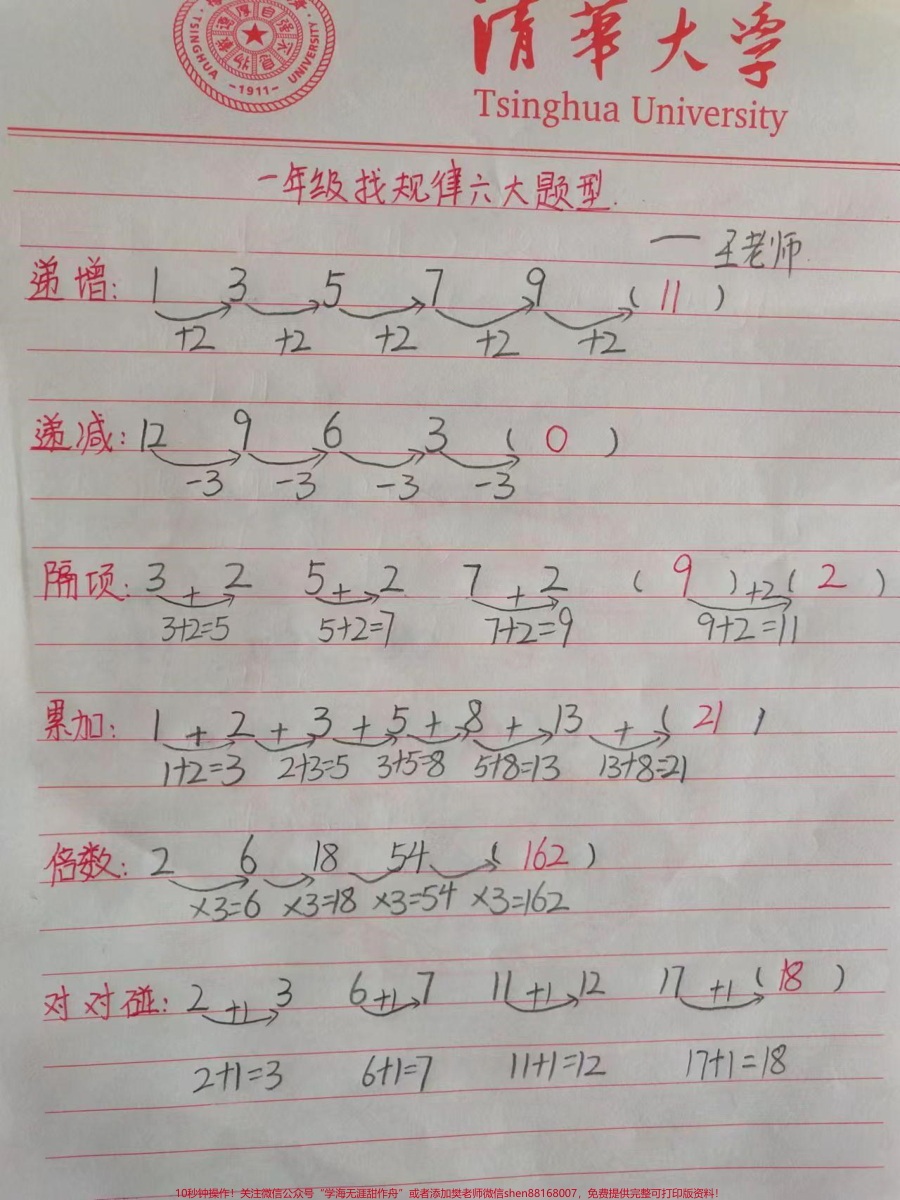 TSINGHUA UNIVERSITY
自强不息 厚德载物
-1911-
清華大学
Tsinghua University
一年级找规律六大题型.
— 王老师.
递增: 1 3 5 7 9 ( 11 )
+2 +2 +2 +2 +2
递减: 12 9 6 3 ( 0 )
-3 -3 -3 -3
隔项: 3 + 2 5 + 2 7 + 2 ( 9 ) +2 ( 2 )
3+2=5 5+2=7 7+2=9 9+2=11
累加: 1 + 2 + 3 + 5 + 8 + 13 + ( 21 )
1+2=3 2+3=5 3+5=8 5+8=13 13+8=21
倍数: 2 6 18 54 ( 162 )
×3=6 ×3=18 ×3=54 ×3=162
对对碰: 2 +1 3 6 +1 7 11 +1 12 17 +1 ( 18 )
2+1=3 6+1=7 11+1=12 17+1=18
10秒钟操作！关注微信公众号“学海无涯甜作舟”或者添加樊老师微信shen88168007，免费提供完整可打印版资料！